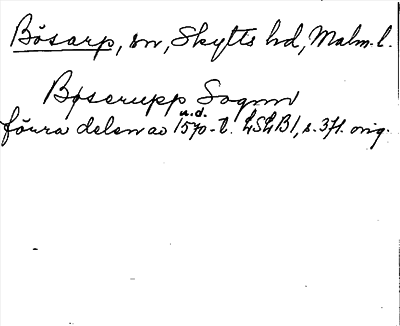 Bösarp, sn, Skytts hd, Malm. l.
Bøserupp Sognn
u.d.
förra delen av 1570-t. LSLB1, s. 371. orig.